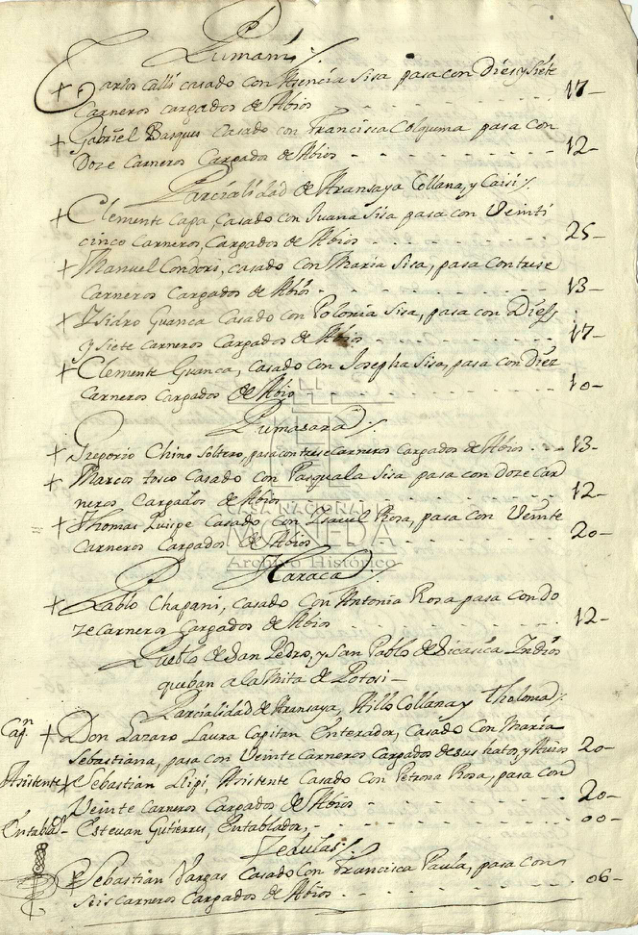 Pumani /.
+ Carlos Calli casado con Asencia Sisa pasa con Dies y siete
Carneros cargados de Abios 17-
+ Gabriel Basques Casado con Francisca Colquema pasa con
Doze Carneros Cargados de Abios - - - 12-
Parcialidad de Aransaya Collana, y Caisi /.
+ Clemente Capa, Casado con Juana Sisa pasa con Veinti
cinco Carneros, Cargados de Abios - - - 25-
+ Manuel Condori, casado con Maria Sisa, pasa con trese
Carneros Cargados de Abios - - - 13-
+ Isidro Guanca Casado con Polonia Sisa, pasa con Dies
y siete carneros Cargados de Abios - - - 17-
+ Clemente Guanca, casado con Josepha Sisa, pasa con Diez
Carneros Cargados de Abio 10-
Pumasara /.
+ Gregorio Chino Soltero, pasa con trese Carneros Cargados de Abios - - 13-
+ Marcos tosco Casado con Pasquala Sisa pasa con Doze Car
neros Cargados de Abios - - - 12-
= + Thomas Quispe Casado con Isavel Rosa, pasa con Veinte
Carneros Cargados de Abios - - - 20-
CASA NACIONAL
MONEDA
Archivo Histórico
Haraca /.
+ Pablo Chapani, casado Con Antonia Rosa pasa con do
ze carneros Cargados de Abios - - - 12-
Pueblo de San Pedro, y San Pablo de Sicasica Indios
que ban a la Mita de Potosi -
Parcialidad de Aransaya, Hillo Collana y Tholoma /.
Capn + Don Lazaro Laura Capitan Enterador, Casado Con Maria
Sebastiana, pasa con Veinte Carneros Cargados de sus hatos, y Avios 20-
Asistente + Sebastian Lipi, Asistente Casado Con Petrona Rosa, pasa con
Veinte carneros Cargados de Abios - - - 20-
Entablador - Estevan Gutierres, Entablador, - - - 00-
+ Sebastian Vargas Casado Con Francisca Paula, pasa con
Seis carneros Cargados de Abios - - - 06-